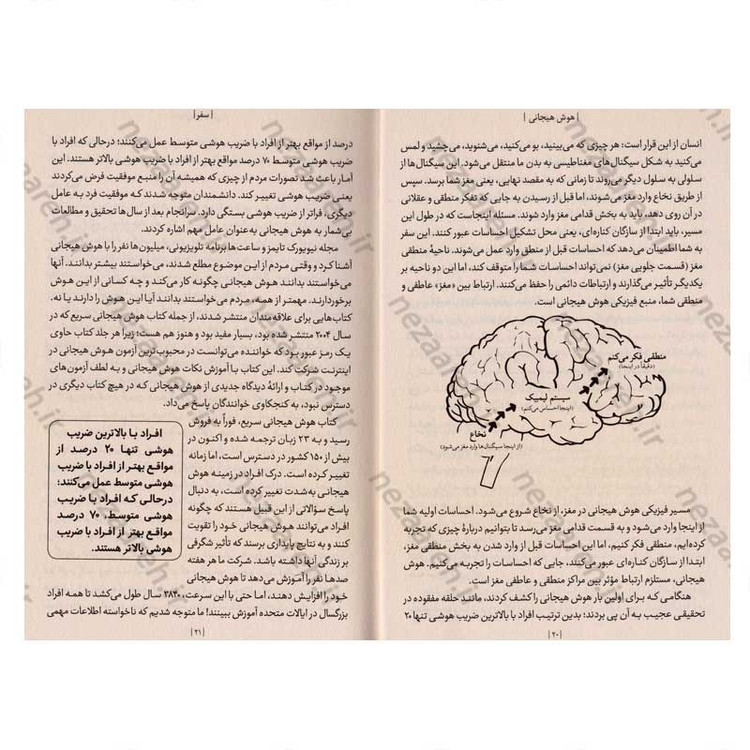 | هوش هیجانی |
انسان از این قرار است: هر چیزی که می‌بینید، بو می‌کنید، می‌شنوید، می‌چشید و لمس
می‌کنید به شکل سیگنال‌های مغناطیسی به بدن ما منتقل می‌شود. این سیگنال‌ها از
سلولی به سلول دیگر می‌روند تا زمانی که به مقصد نهایی، یعنی مغز شما برسد. سپس
از طریق نخاع وارد مغز می‌شوند، اما قبل از رسیدن به جایی که تفکر منطقی و عقلانی
در آن روی دهد، باید به بخش قدامی مغز وارد شوند. مسئله اینجاست که در طول این
مسیر، باید ابتدا از سازگان کناره‌ای، یعنی محل تشکیل احساسات عبور کنند. این سفر
به شما اطمینان می‌دهد که احساسات قبل از منطق وارد عمل می‌شوند. ناحیهٔ منطقی
مغز (قسمت جلویی مغز) نمی‌تواند احساسات شما را متوقف کند، اما این دو ناحیه بر
یکدیگر تأثیر می‌گذارند و ارتباطات دائمی را حفظ می‌کنند. ارتباط بین «مغز» عاطفی و
منطقی شما، منبع فیزیکی هوش هیجانی است.
منطقی فکر می‌کنم
(دقیقاً در اینجا)
سیستم لیمبیک
(اینجا احساس می‌کنم)
نخاع
(از اینجا سیگنال‌ها وارد مغز می‌شود)
مسیر فیزیکی هوش هیجانی در مغز، از نخاع شروع می‌شود. احساسات اولیه شما
از اینجا وارد می‌شود و به قسمت قدامی مغز می‌رسد تا بتوانیم دربارهٔ چیزی که تجربه
کرده‌ایم، منطقی فکر کنیم، اما این احساسات قبل از وارد شدن به بخش منطقی مغز،
ابتدا از سازگان کناره‌ای عبور می‌کنند، جایی که احساسات را تجربه می‌کنیم. هوش
هیجانی، مستلزم ارتباط مؤثر بین مراکز منطقی و عاطفی مغز است.
هنگامی که برای اولین بار هوش هیجانی را کشف کردند، مانند حلقه مفقوده در
تحقیقی عجیب به آن پی بردند؛ بدین ترتیب افراد با بالاترین ضریب هوشی تنها ۲۰
| ۲۰ |
| سفر |
درصد از مواقع بهتر از افراد با ضریب هوشی متوسط عمل می‌کنند؛ درحالی که افراد با
ضریب هوشی متوسط ۷۰ درصد مواقع بهتر از افراد با ضریب هوشی بالاتر هستند. این
آمار باعث شد تصورات مردم از چیزی که همیشه آن را منبع موفقیت فرض می‌کردند
یعنی ضریب هوشی تغییر کند. دانشمندان متوجه شدند که موفقیت فرد به عامل
دیگری، فراتر از ضریب هوشی بستگی دارد. سرانجام بعد از سال‌ها تحقیق و مطالعات
بی‌شمار به هوش هیجانی به‌عنوان عامل مهم اشاره کردند.
مجله نیویورک تایمز و ساعت‌ها برنامه تلویزیونی، میلیون‌ها نفر را با هوش هیجانی
آشنا کرد و وقتی مردم از این موضوع مطلع شدند، می‌خواستند بیشتر بدانند. آنها
می‌خواستند بدانند هوش هیجانی چگونه کار می‌کند و چه کسانی از این هوش
برخوردارند. مهمتر از همه، مردم می‌خواستند بدانند آیا این هوش را دارند یا نه.
کتاب‌هایی برای علاقه‌مندان منتشر شدند، از جمله کتاب هوش هیجانی سریع که در
سال ۲۰۰۴ منتشر شده بود، بسیار مفید بود و هنوز هم هست؛ زیرا هر جلد کتاب حاوی
یک رمز عبور بود که خواننده می‌توانست در محبوب‌ترین آزمون هوش هیجانی در
اینترنت شرکت کند. این کتاب با آموزش نکات هوش هیجانی و به لطف آزمون‌های
موجود در کتاب و ارائهٔ دیدگاه جدیدی از هوش هیجانی که در هیچ کتاب دیگری در
دسترس نبود، به کنجکاوی خوانندگان پاسخ می‌داد.
کتاب هوش هیجانی سریع، فوراً به فروش
رسید و به ۲۳ زبان ترجمه شده و اکنون در
بیش از ۱۵۰ کشور در دسترس است، اما زمانه
تغییر کرده است. درک افراد در زمینه هوش
هیجانی به‌شدت تغییر کرده است، به دنبال
پاسخ سؤالاتی از این قبیل هستند که چگونه
افراد می‌توانند هوش هیجانی خود را تقویت
کنند و به نتایج پایداری برسند که تأثیر شگرفی
بر زندگی آنها داشته باشد. شرکت ما هر هفته
صدها نفر را آموزش می‌دهد تا هوش هیجانی
خود را افزایش دهند، اما حتی با این سرعت، ۳۸۴۰ سال طول می‌کشد تا همه افراد
بزرگسال در ایالات متحده آموزش ببینند! ما متوجه شدیم که ناخواسته اطلاعات مهمی
افراد با بالاترین ضریب
هوشی تنها ۲۰ درصد از
مواقع بهتر از افراد با ضریب
هوشی متوسط عمل می‌کنند؛
درحالی که افراد با ضریب
هوشی متوسط، ۷۰ درصد
مواقع بهتر از افراد با ضریب
هوشی بالاتر هستند.
| ۲۱ |
nezaarh.ir